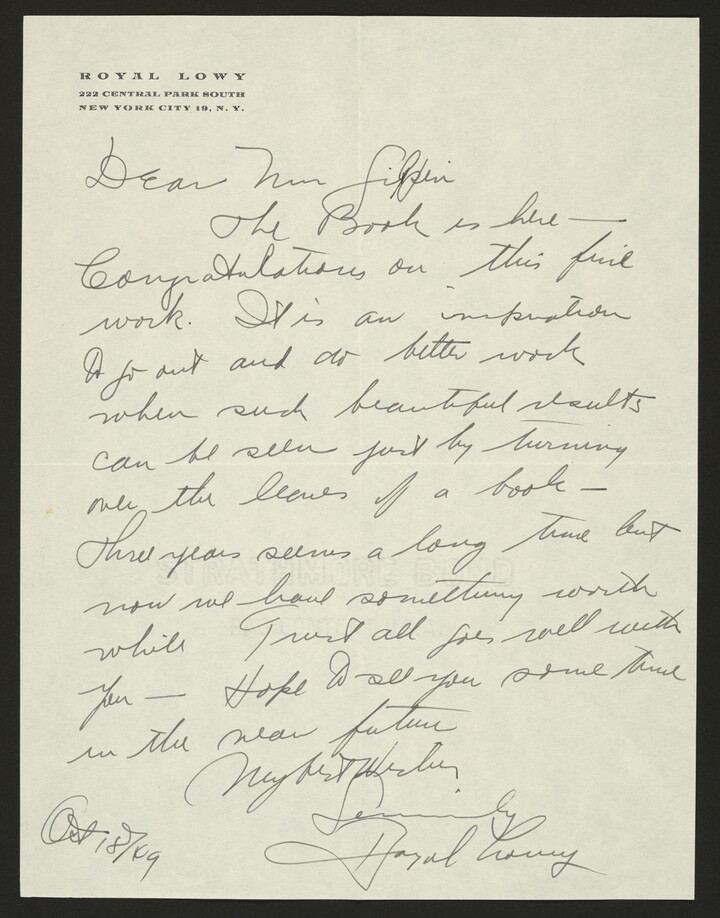 ROYAL LOWY
222 CENTRAL PARK SOUTH
NEW YORK CITY 19, N. Y.
Dear Mr
The Book is here —
Congratulations on this fine
work. It is an inspiration
to go out and do better work
when such beautiful results
can be seen just by turning
over the leaves of a book —
Three years seems a long time but
now we have something worth
while Trust all goes well with
you — Hope to see you some time
in the near future
My best Wishes
Sincerely
Royal Lowy
Oct 18/49
STRATHMORE BOND